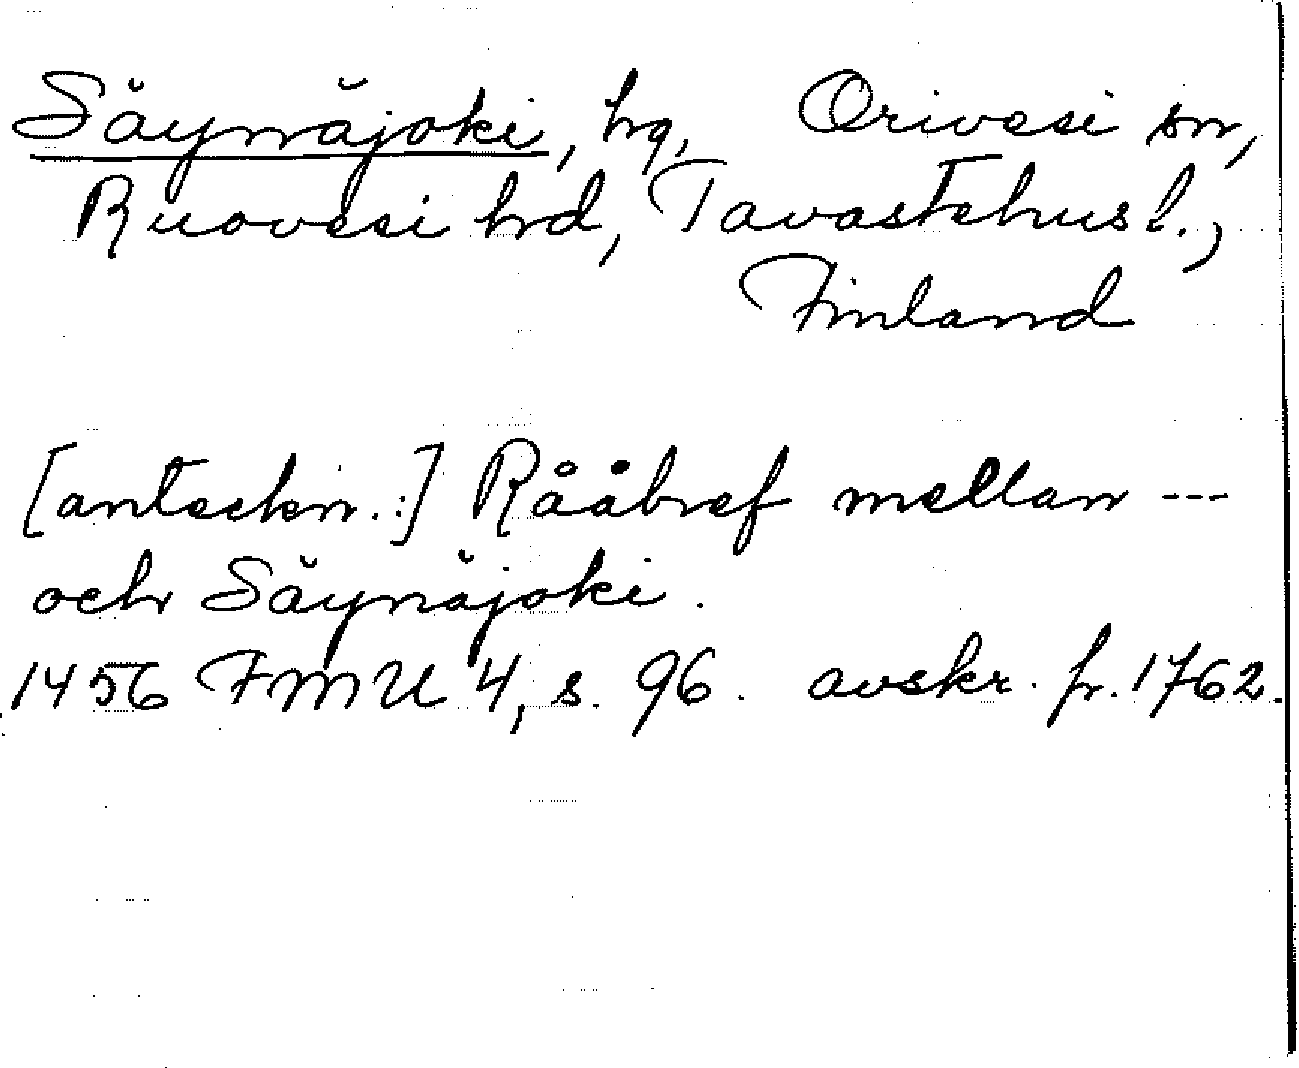 Säynäjoki, hg, Orivesi sn,
Ruovesi hrd, Tavastehus l.,
Finland
[anteckn.:] Rååbref mellan ---
och Säynäjoki.
1456 FMU 4, s. 96. avskr. fr. 1762.